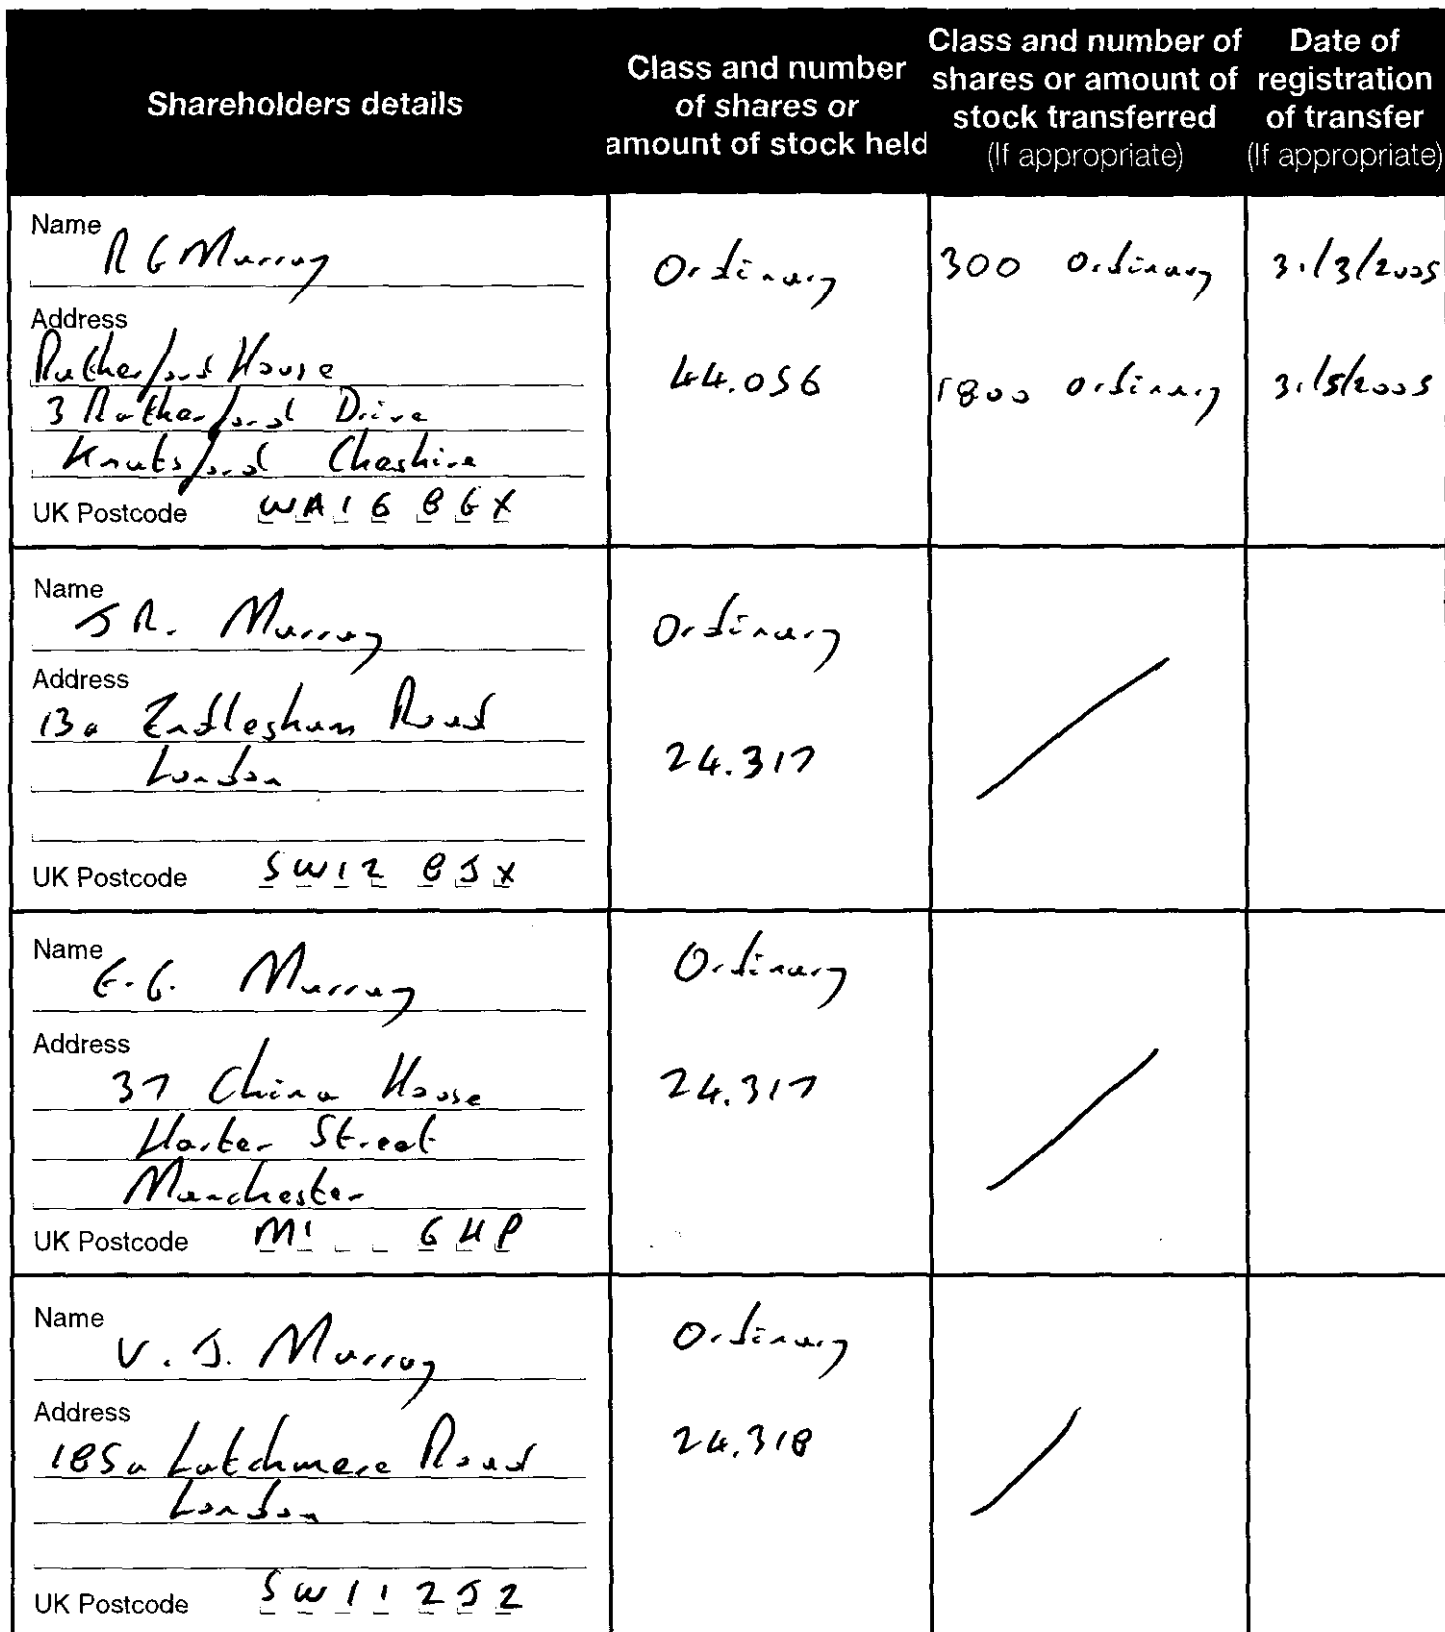 Shareholders details
Class and number
of shares or
amount of stock held
Class and number of
shares or amount of
stock transferred
(If appropriate)
Date of
registration
of transfer
(If appropriate)
Name
R G Murray
Address
Rutherford House
3 Rutherford Drive
Knutsford Cheshire
UK Postcode WA16 8GX
Ordinary
44.056
300 Ordinary 31/3/2005
1800 Ordinary 31/5/2005
Name
J R. Murray
Address
13a Endlesham Road
London
UK Postcode SW12 8JX
Ordinary
24.317
Name
E.G. Murray
Address
37 China House
Harter Street
Manchester
UK Postcode M1 6HP
Ordinary
24.317
Name
V. J. Murray
Address
185a Latchmere Road
London
UK Postcode SW11 2JZ
Ordinary
24.318